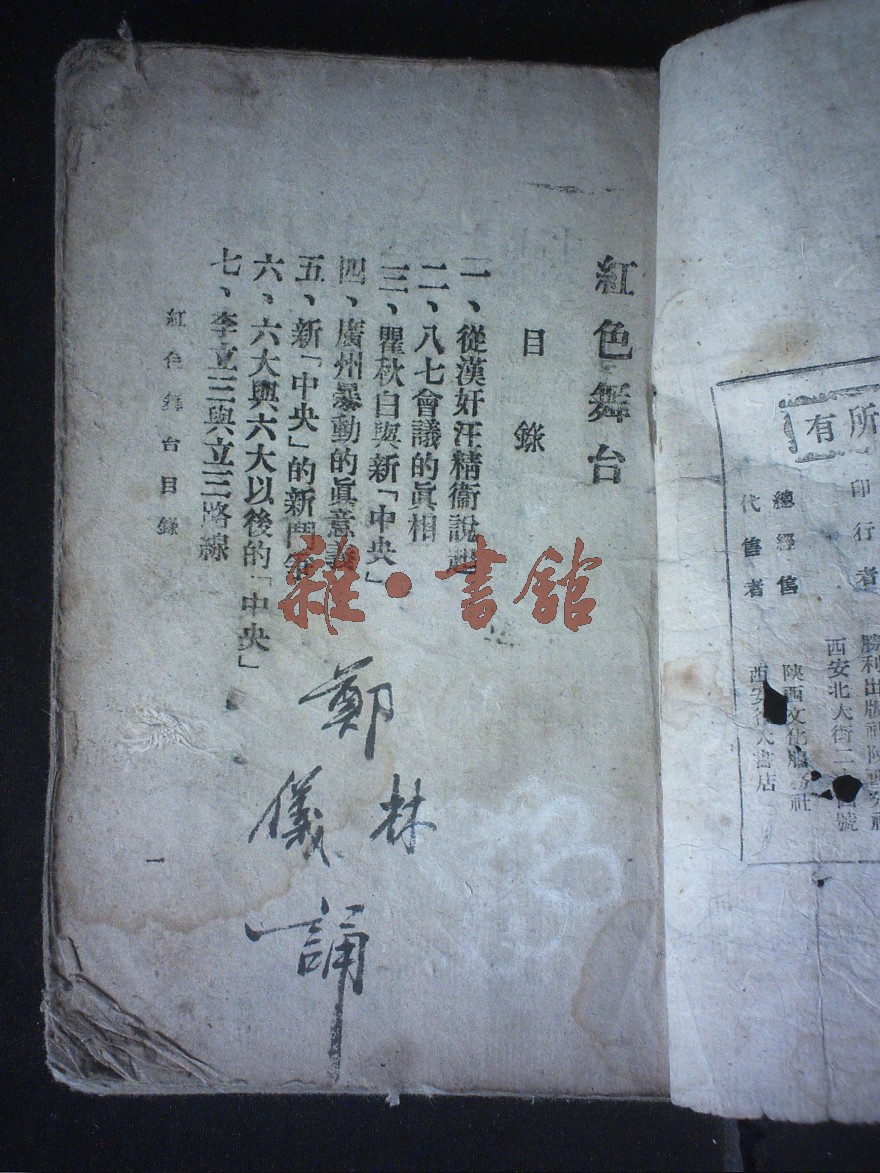 紅色舞台
目錄
一、從漢奸汪精衞說起
二、八七會議的眞相
三、瞿秋白與新「中央」
四、廣州暴動的眞意義
五、新「中央」的新鬥爭
六、六大與六大以後的「中央」
七、李立三與立三路線
紅色舞台目錄
一
鄭
林
儀
誦
雜·書館
所有
印行者
勝利出版社陝西分社
西安北大街二
號
總經售
陝西文化服務社
代售者
西安
大書店